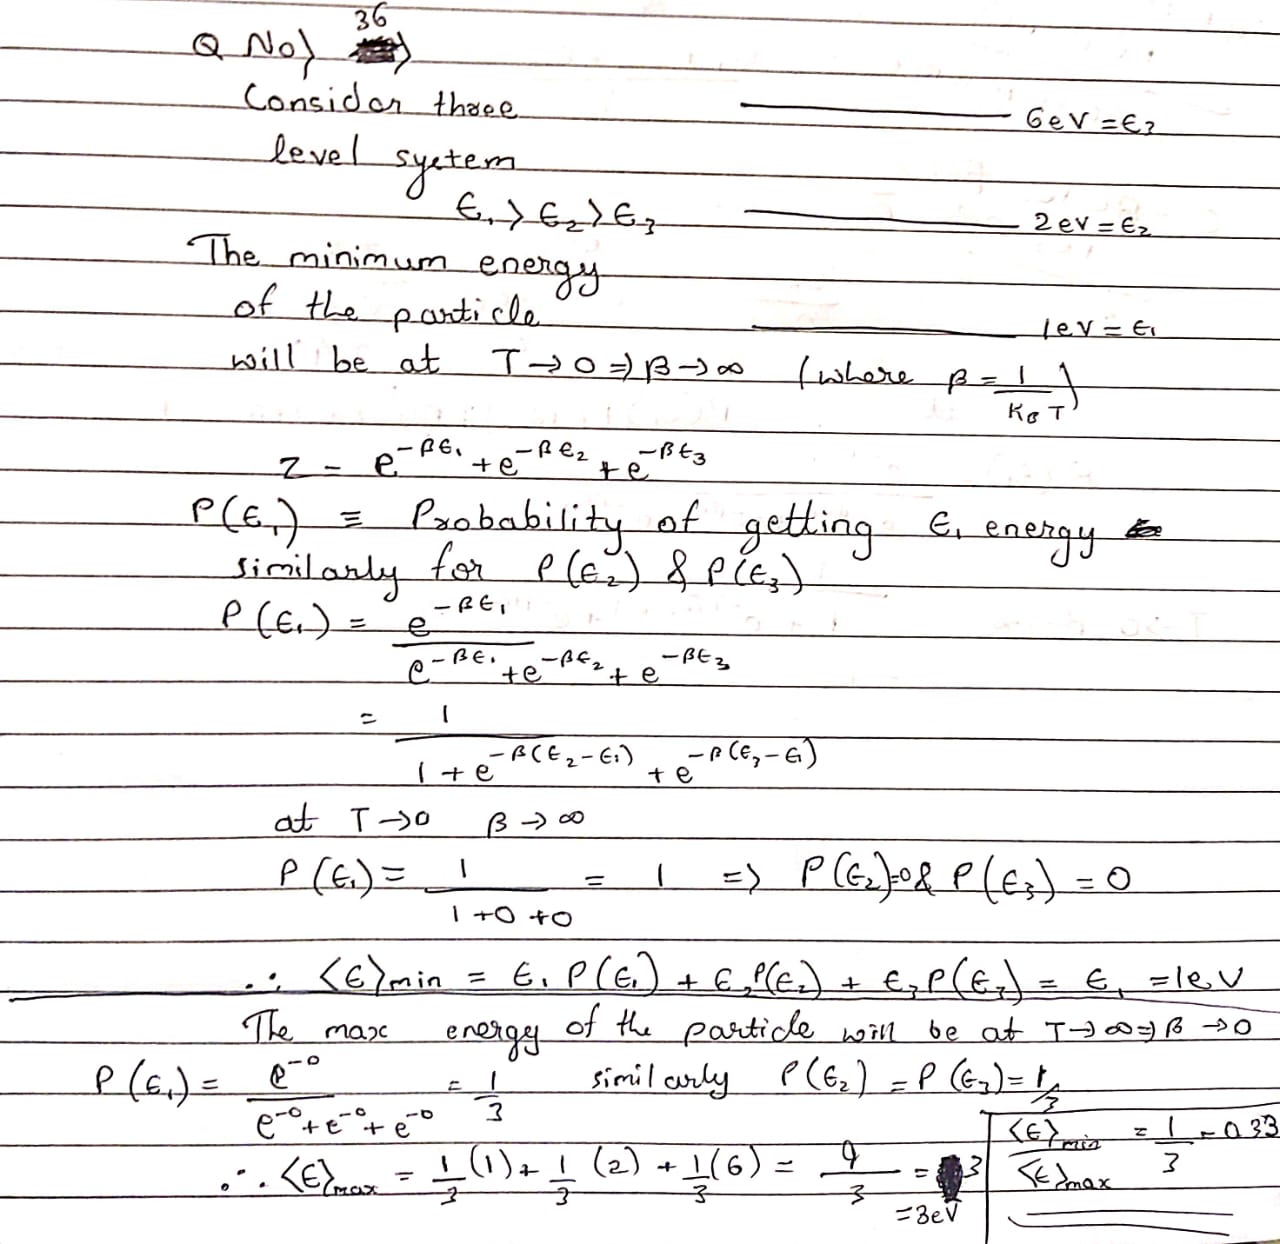 Q No) 36)
Consider three
6eV = ϵ3
level system
ϵ1 > ϵ2 > ϵ3
2eV = ϵ2
The minimum energy
of the particle
1eV = ϵ1
will be at T → 0 ⇒ β → ∞ (where β = 1/(KB T))
Z = e^(-βϵ1) + e^(-βϵ2) + e^(-βϵ3)
P(ϵ1) ≡ Probability of getting ϵ1 energy
similarly for P(ϵ2) & P(ϵ3)
P(ϵ1) = e^(-βϵ1) / (e^(-βϵ1) + e^(-βϵ2) + e^(-βϵ3))
= 1 / (1 + e^(-β(ϵ2-ϵ1)) + e^(-β(ϵ3-ϵ1)))
at T → 0 β → ∞
P(ϵ1) = 1 / (1 + 0 + 0) = 1 => P(ϵ2)=0 & P(ϵ3) = 0
∴ <ϵ>min = ϵ1 P(ϵ1) + ϵ2 P(ϵ2) + ϵ3 P(ϵ3) = ϵ1 = 1eV
The max energy of the particle will be at T → ∞ ⇒ β → 0
P(ϵ1) = e^(-0) / (e^(-0) + e^(-0) + e^(-0)) = 1/3 similarly P(ϵ2) = P(ϵ3) = 1/3
∴ <ϵ>max = 1/3 (1) + 1/3 (2) + 1/3 (6) = 9/3 = 3
= 3eV
<ϵ>min / <ϵ>max = 1/3 = 0.33